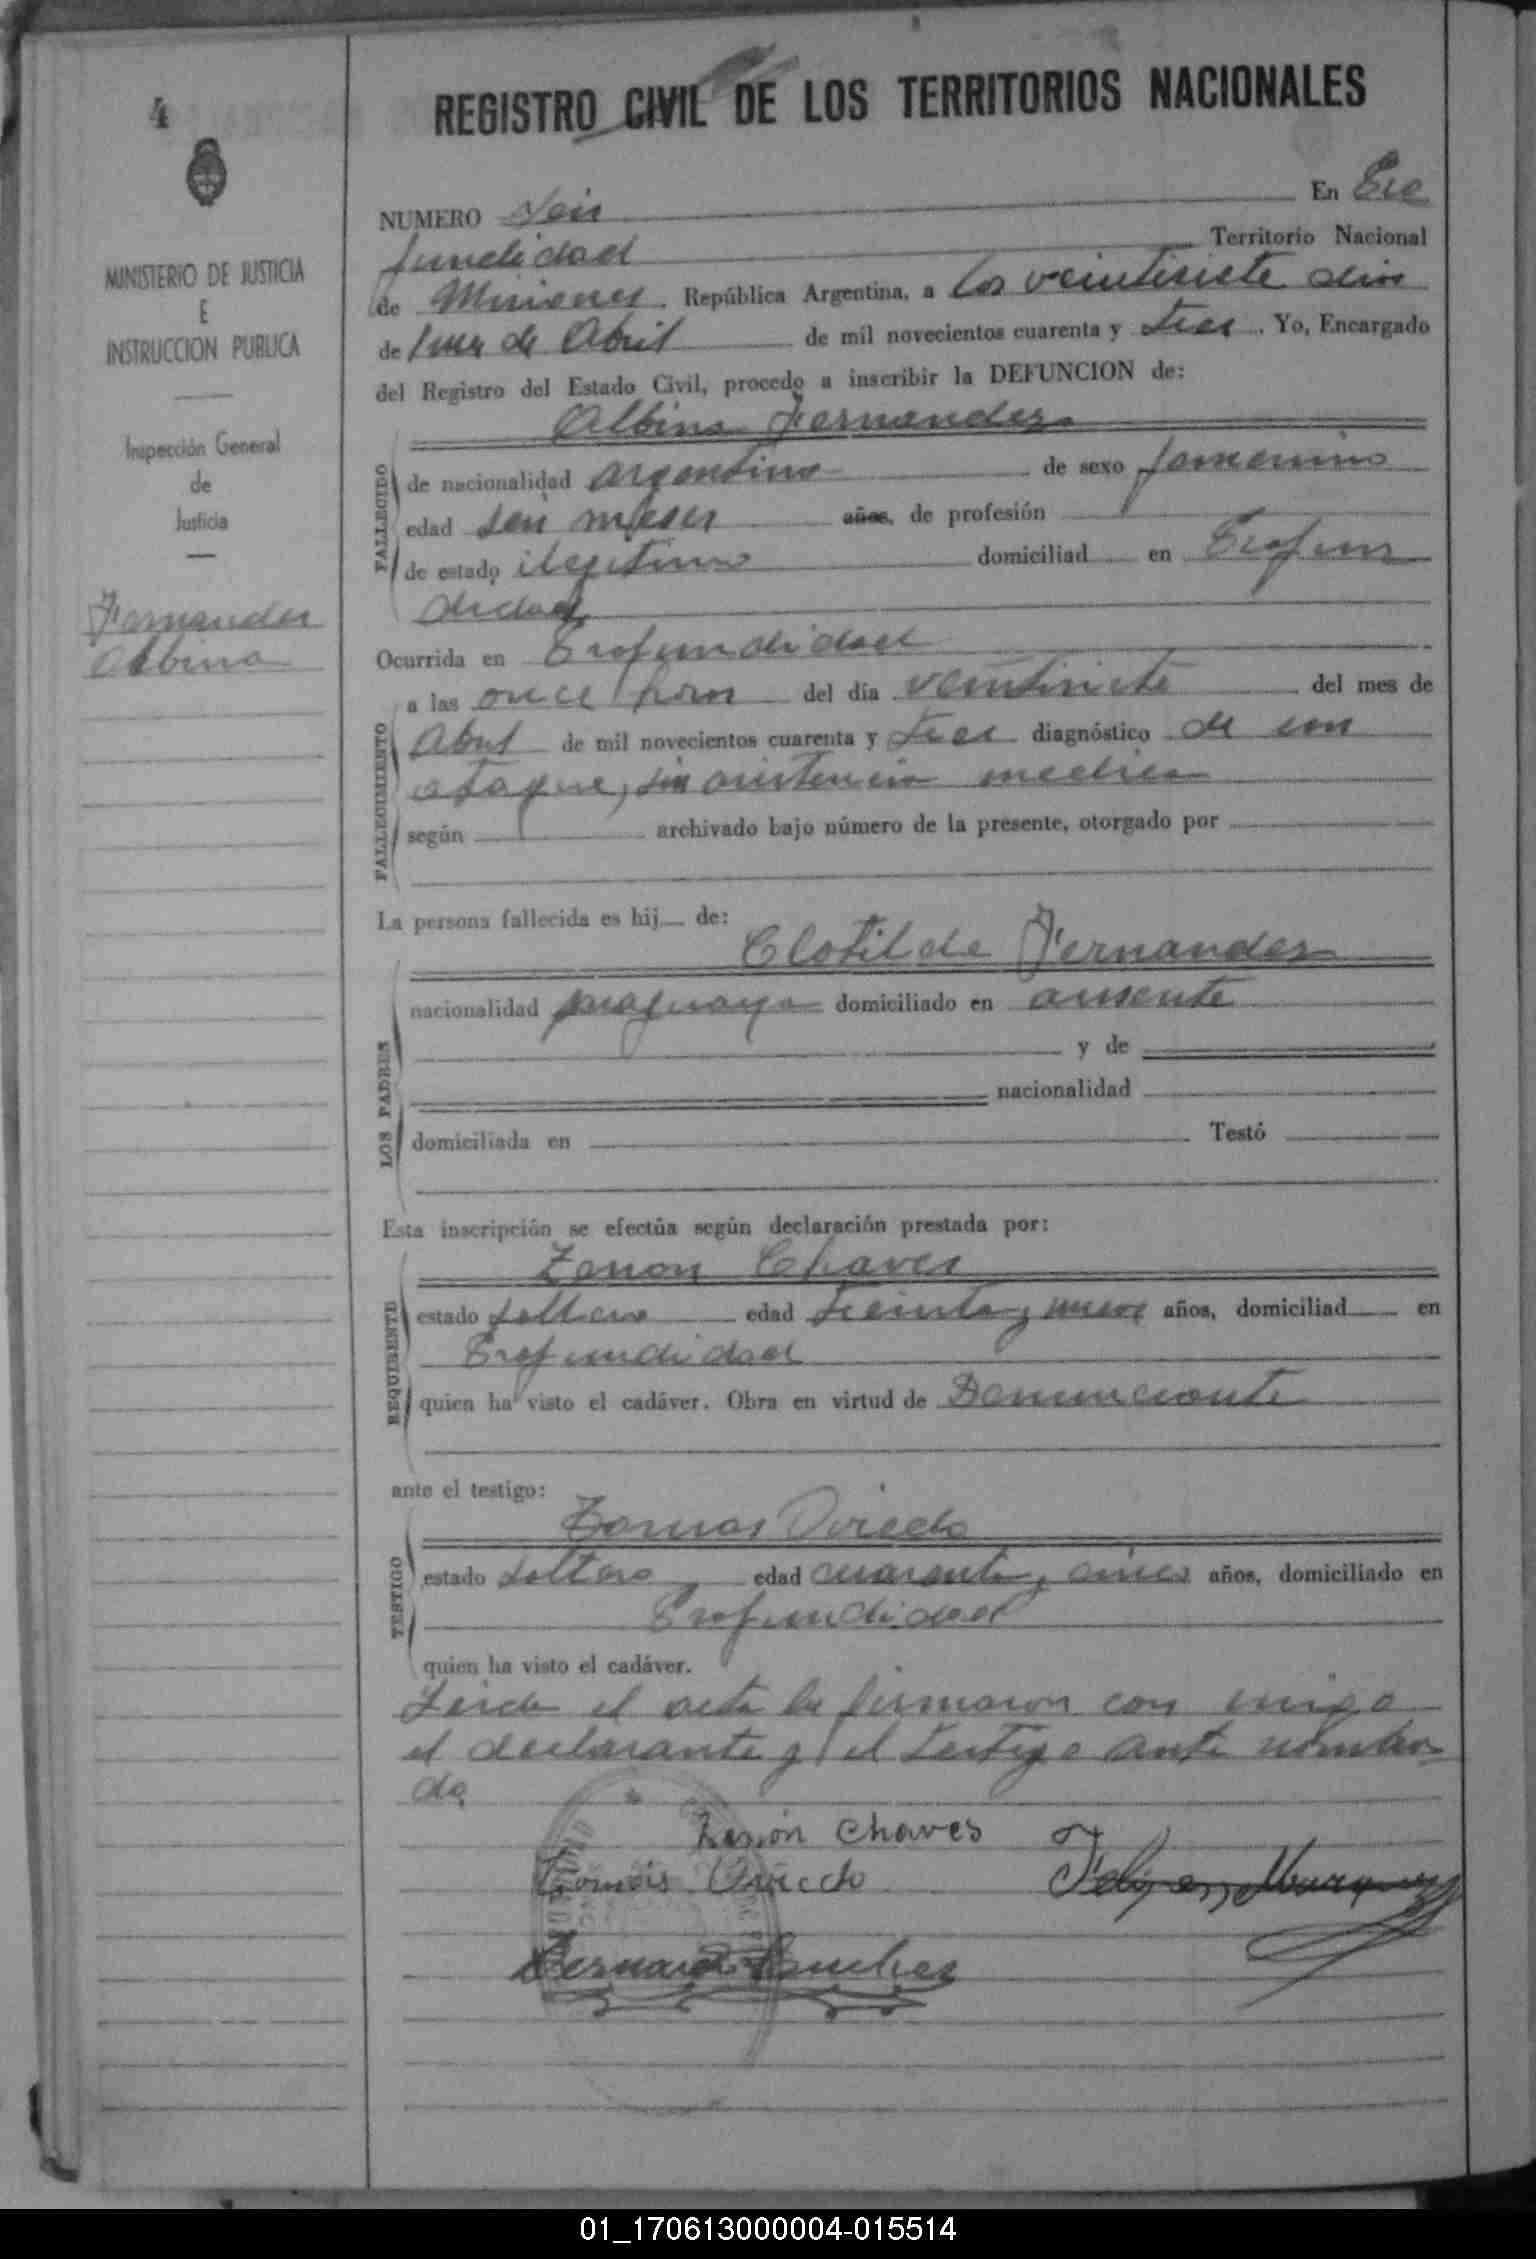 4
REGISTRO CIVIL DE LOS TERRITORIOS NACIONALES
MINISTERIO DE JUSTICIA
E
INSTRUCCION PUBLICA
Inspección General
de
Justicia
Fernandez
Albina
NUMERO Seis En Pro
fundidad Territorio Nacional
de Misiones. República Argentina, a los veintisiete dias
de l mes de Abril de mil novecientos cuarenta y tres. Yo, Encargado
del Registro del Estado Civil, procedo a inscribir la DEFUNCION de:
Albina Fernandez
FALLECIDO
de nacionalidad argentina de sexo femenino
edad seis meses años, de profesión
de estado ilegitima domiciliad en Profun
didad
Ocurrida en Profundidad
FALLECIMIENTO
a las once horas del día veintisiete del mes de
Abril de mil novecientos cuarenta y tres diagnóstico de un
ataque, sin asistencia medica
según archivado bajo número de la presente, otorgado por
La persona fallecida es hij de:
Clotilde Fernandez
LOS PADRES
nacionalidad paraguaya domiciliado en ausente
y de
nacionalidad
domiciliada en Testó
Esta inscripción se efectúa según declaración prestada por:
Zenon Chaves
REQUIRENTE
estado soltero edad treinta y nueve años, domiciliad en
Profundidad
quien ha visto el cadáver. Obra en virtud de Denunciante
ante el testigo:
Tomas Oviedo
TESTIGO
estado soltero edad cuarenta y cinco años, domiciliado en
Profundidad
quien ha visto el cadáver.
Leida el acta la firmaron con migo
el declarante y el testigo ante nombra
do.
Zenón Chaves
Tomás Oviedo Marquez
Sanchez
01_170613000004-015514